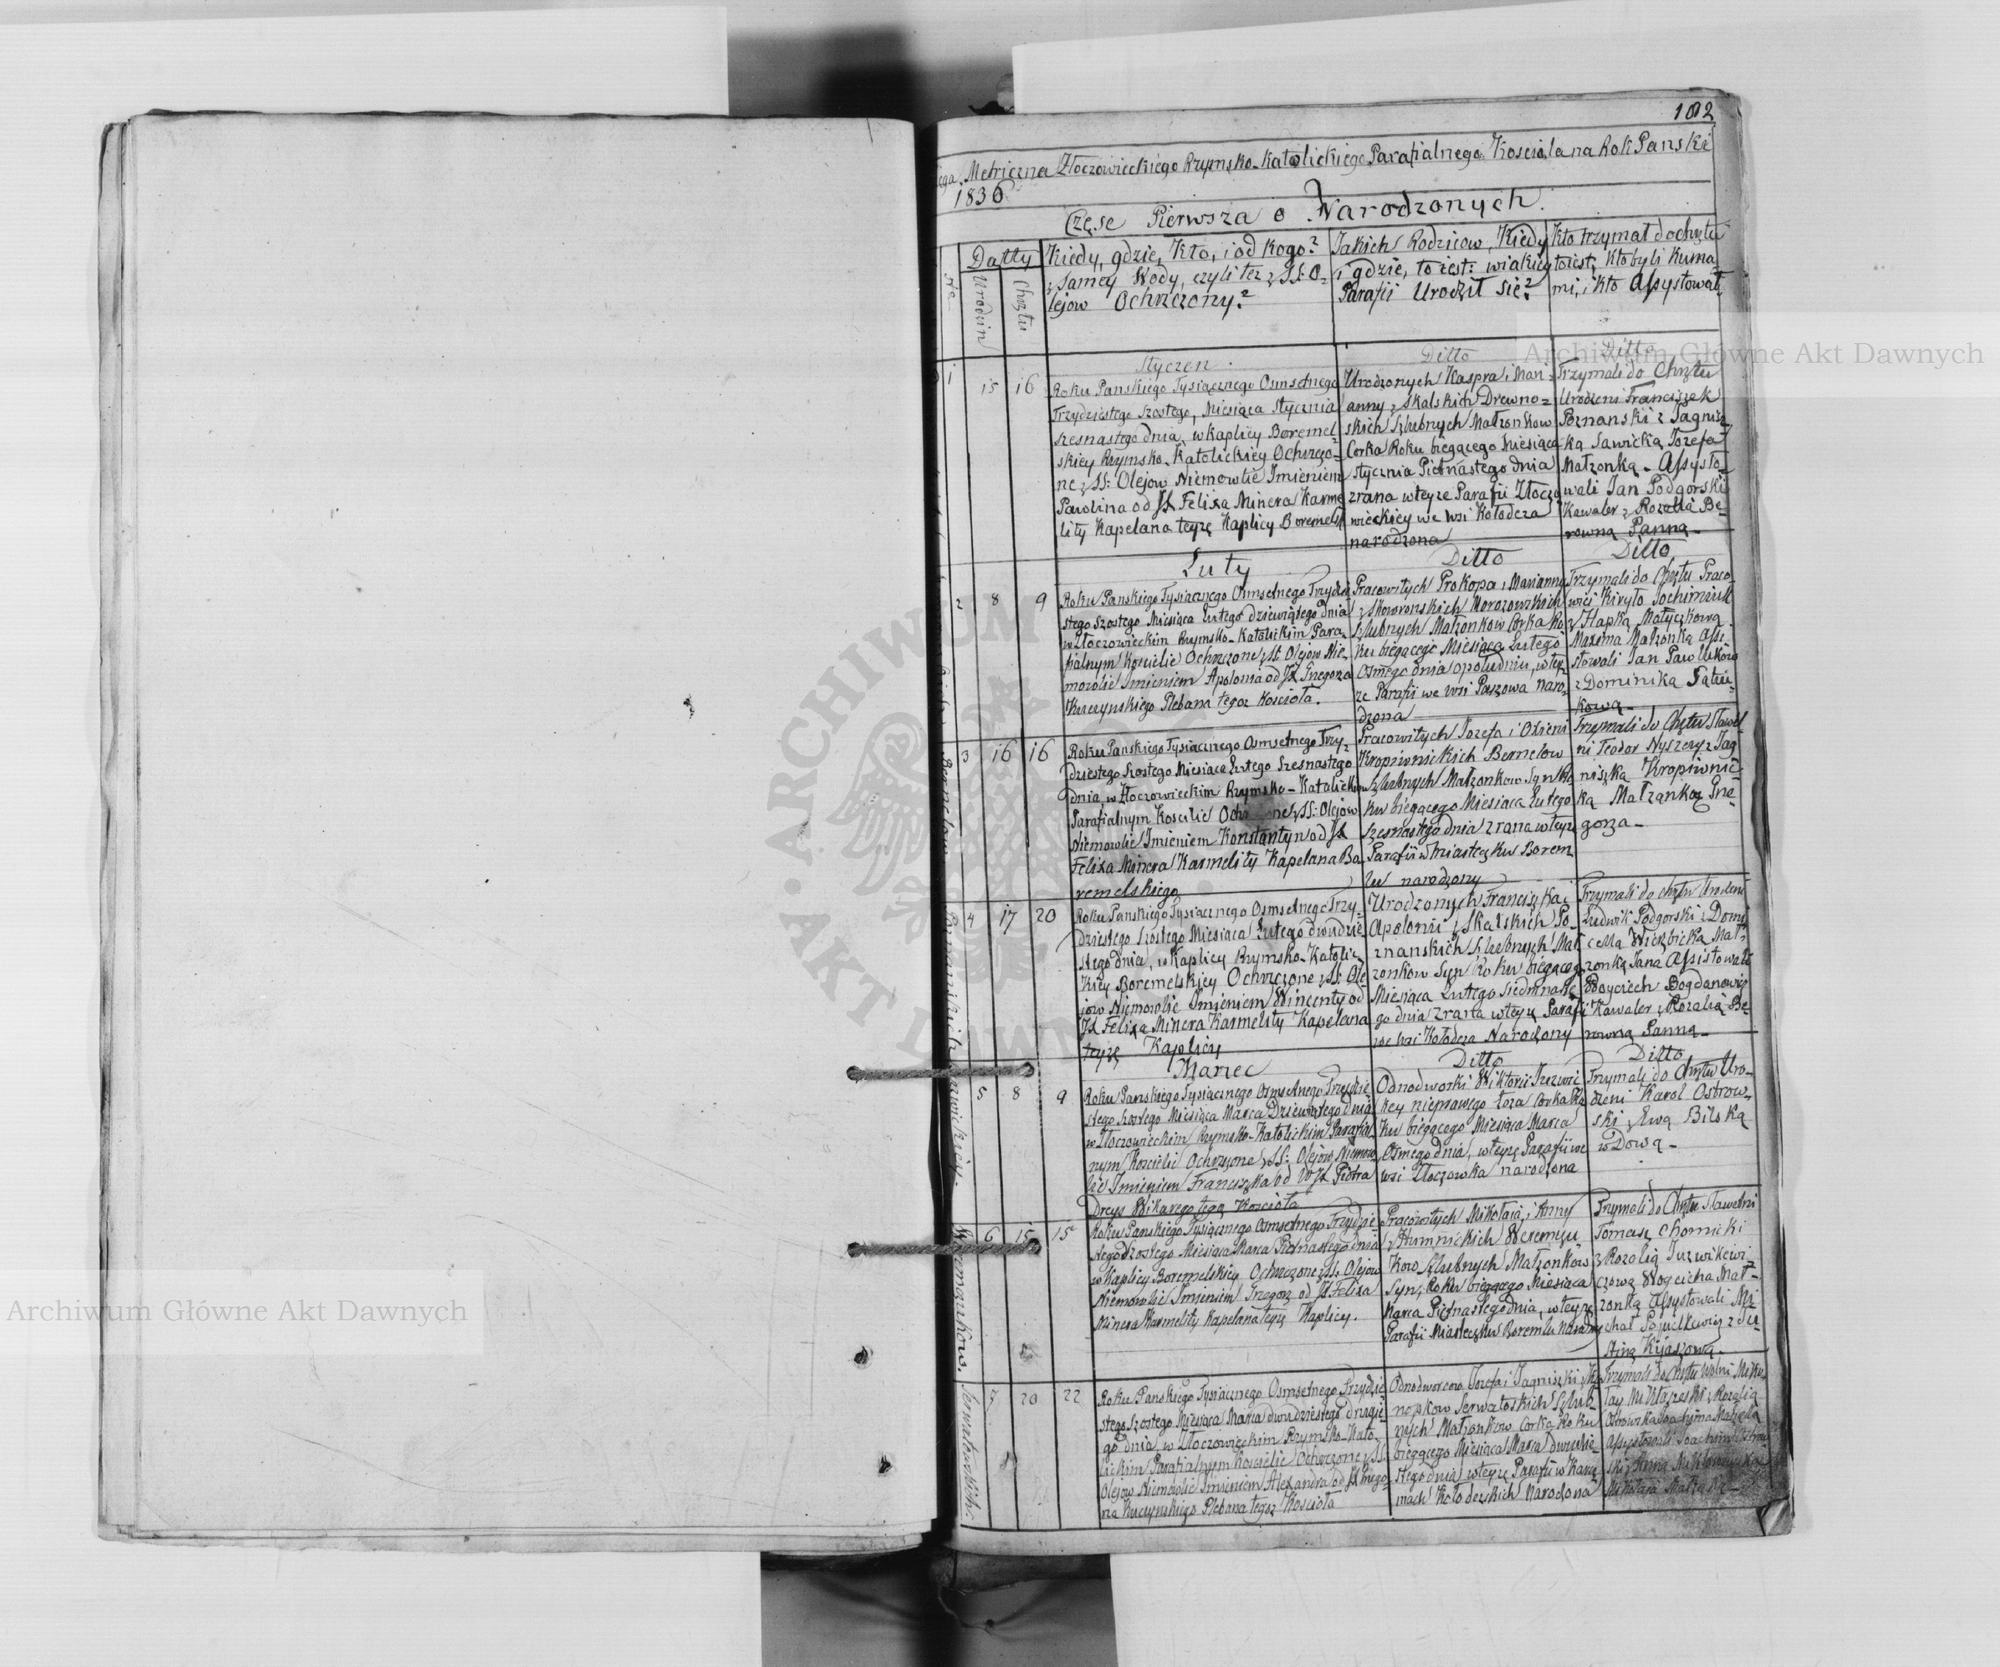 102
Metriczna Złoczowieckiego Rzymsko-Katolickiego Parafialnego Kosciola na Rok Panski
1836
Częsc Pierwsza o Narodzonych.
No
Datty
Urodzin
Chrztu
Kiedy, gdzie, Kto, i od kogo?
z samey Wody, czyli też z SS: O-
lejow Ochrzczony?
Jakich Rodzicow, Kiedy
i gdzie, to iest: w iakiey
Parafii Urodził się?
Kto trzymał do chrztu
to iest, Kto byli Kuma
mi, i kto Assystował
Styczen
Ditto
Ditto
1 15 16
Roku Panskiego Tysiącznego Osmsetnego
Trzydziestego szostego, Miesiąca Stycznia
szesnastego dnia w Kaplicy Boremel-
skiey Rzymsko-Katolickiey Ochrzczo-
ne z SS: Olejow Niemowlie Imieniem
Parolina od JX Felixa Minera Karme
lity Kapelana teyże Kaplicy Boremels
Urodzonych Kaspra i Mari
anny z Skalskich Drewno-
skich Szlubnych Małzonkow
Corka Roku bieżącego Miesiąca
Stycznia Piętnastego dnia
zrana w teyze Parafii Złoczo
wieckiey we wsi Kołodcza
narodzona
Trzymali do Chrztu
Urodzeni Franciszek
Poznanski z Jagnisz
ką Sawicką Jozefa
Małzonką - Assysto-
wali Jan Podgorski
Kawaler z Rozalią Be-
rowną Panną -
Luty
Ditto
Ditto
2 8 9
Roku Panskiego Tysiącznego Osmsetnego Trzydzie-
stego szostego Miesiąca Lutego dziewiątego dnia
w Złoczowieckim Rzymsko-Katolickim Para-
fialnym Kościelie Ochrzczone z SS Olejow Nie-
mowlie Imieniem Apolonia od JX Grzegorza
Kuczynskiego Plebana tegoz Kosciola.
Pracowitych Prokopa i Marianny
z Skowronskich Morozowskich
Szlubnych Małzonkow Corka Ro
ku bieżącego Miesiąca Lutego
Osmego dnia opołudniu, w tey
ze Parafii we wsi Paszowa Naro-
dzona
Trzymali do Chrztu Praco-
wici Kiryło Jochimiuk
z Hapką Matyczkową
Maxima Małzonką Assi-
stowali Jan Pawlukow
z Dominiką
kową -
3 16 16
Roku Panskiego Tysiącznego Osmsetnego Trzy-
dziestego Szostego Miesiąca Lutego Szesnastego
dnia, w Złoczowieckim Rzymsko-Katolickim
Parafialnym Koscielie z SS: Olejow
Niemowlie Imieniem Konstantyn od JX
Felixa Minera Karmelity Kapelana Bo
remelskiego
Pracowitych Jozefa i Oxieni
Kropiwnickich Bernelow
Szlubnych Małzonkow Syn Ro
ku bieżącego Miesiąca Lutego
szesnastego dnia zrana w teyze
Parafii w Miasteczku Borem
lu narodzony
Trzymali do Chrztu Sławet
ni Teodor Nyszczy z Jag
niszką Kropiwnic-
ką Małzonką Grze-
gorza -
4 17 20
Roku Panskiego Tysiącznego Osmsetnego Trzy-
dziestego szostego Miesiąca Lutego dwudzie-
stego dnia, w Kaplicy Rzymsko-Katolic-
kiey Boremelskiey Ochrzczone z SS: Ole
jow Niemowlie Imieniem Wincenty od
JX Felixa Minera Karmelity Kapelana
teyze Kaplicy
Urodzonych Franciszka i
Apolonii z Skalskich Po-
znanskich Szlubnych Mał
zonkow Syn Roku bieżącego
Miesiąca Lutego siedmnaste
go dnia zrana w teyze Parafii
we wsi Kołodcza Narodzony
Trzymali do chrztu Urodzeni
Ludwik Podgorski z Domi
cellą Wierzbicką Mał-
zonką Jana Assistowali
Woyciech Bogdanowicz
Kawaler z Rozalią Be-
rowną Panną -
Marzec
Ditto
Ditto
5 8 9
Roku Panskiego Tysiącznego Osmsetnego Trzydzie
stego szostego Miesiąca Marca Dziewiątego dnia
w Złoczowieckim Rzymsko-Katolickim Parafial
nym Koscielie Ochrzczone z SS: Olejow Niemow
lie Imieniem Franciszka od WJX Piotra
Dreys Wikarego tegoz Kosciola
Odnodworki Wiktorii
key nieprawego łoza Corka Ro
ku bieżącego Miesiąca Marca
Osmego dnia, w teyze Parafii we
wsi Złoczowka narodzona
Trzymali do Chrztu Uro-
dzeni Karol Ostrow-
ski z Ewą Bilską
wDową -
6 15 15
Roku Panskiego Tysiącznego Osmsetnego Trzydzie
stego Szostego Miesiąca Marca Piętnastego dnia
w Kaplicy Boremelskiey Ochrzczone z SS: Olejow
Niemowlie Imieniem Grzegorz od JX Felixa
Minera Karmelity Kapelana teyze Kaplicy.
Pracowitych Mikołaia i Anny
z Humnickich Weremczu
kow Szlubnych Małzonkow
Syn, Roku bieżącego Miesiąca
Marca Piętnastego dnia, w teyze
Parafii Miasteczku Boremlu Narodzony
Trzymali do Chrztu Sławetni
Tomasz Chomicki
z Rozalią Juzwikewi-
czową Woyciecha Mał-
zonką Assystowali Mi-
chał z Ju-
stiną Kijaszową -
7 20 22
Roku Panskiego Tysiącznego Osmsetnego Trzydzie
stego szostego Miesiąca Marca dwudziestego drugie
go dnia, w Złoczowieckim Rzymsko-Kato-
lickim Parafialnym Koscielie Ochrzczone z SS.
Olejow Niemowlie Imieniem Alexandra od JX Grzego
rza Kuczynskiego Plebana tegoz Kosciola
Odnodworcow Jozefa i Jagniszki z Kę
nopkow Serwatoskich Szlub-
nych Małzonkow Corka Roku
bieżącego Miesiąca Marca dwudzie-
stego dnia w teyze Parafii w
mach Kołodezskich Narodona
Trzymali do Chrztu Wolni Miko-
łay z Rozalią
Ostrowską Joachyma Małzonką
Assystowali Joachim Ostrow
ski z Anną
Mikołaja Małzonką -
Archiwum Główne Akt Dawnych
Archiwum Główne Akt Dawnych
ARCHIWUM
AKT DAWNYCH